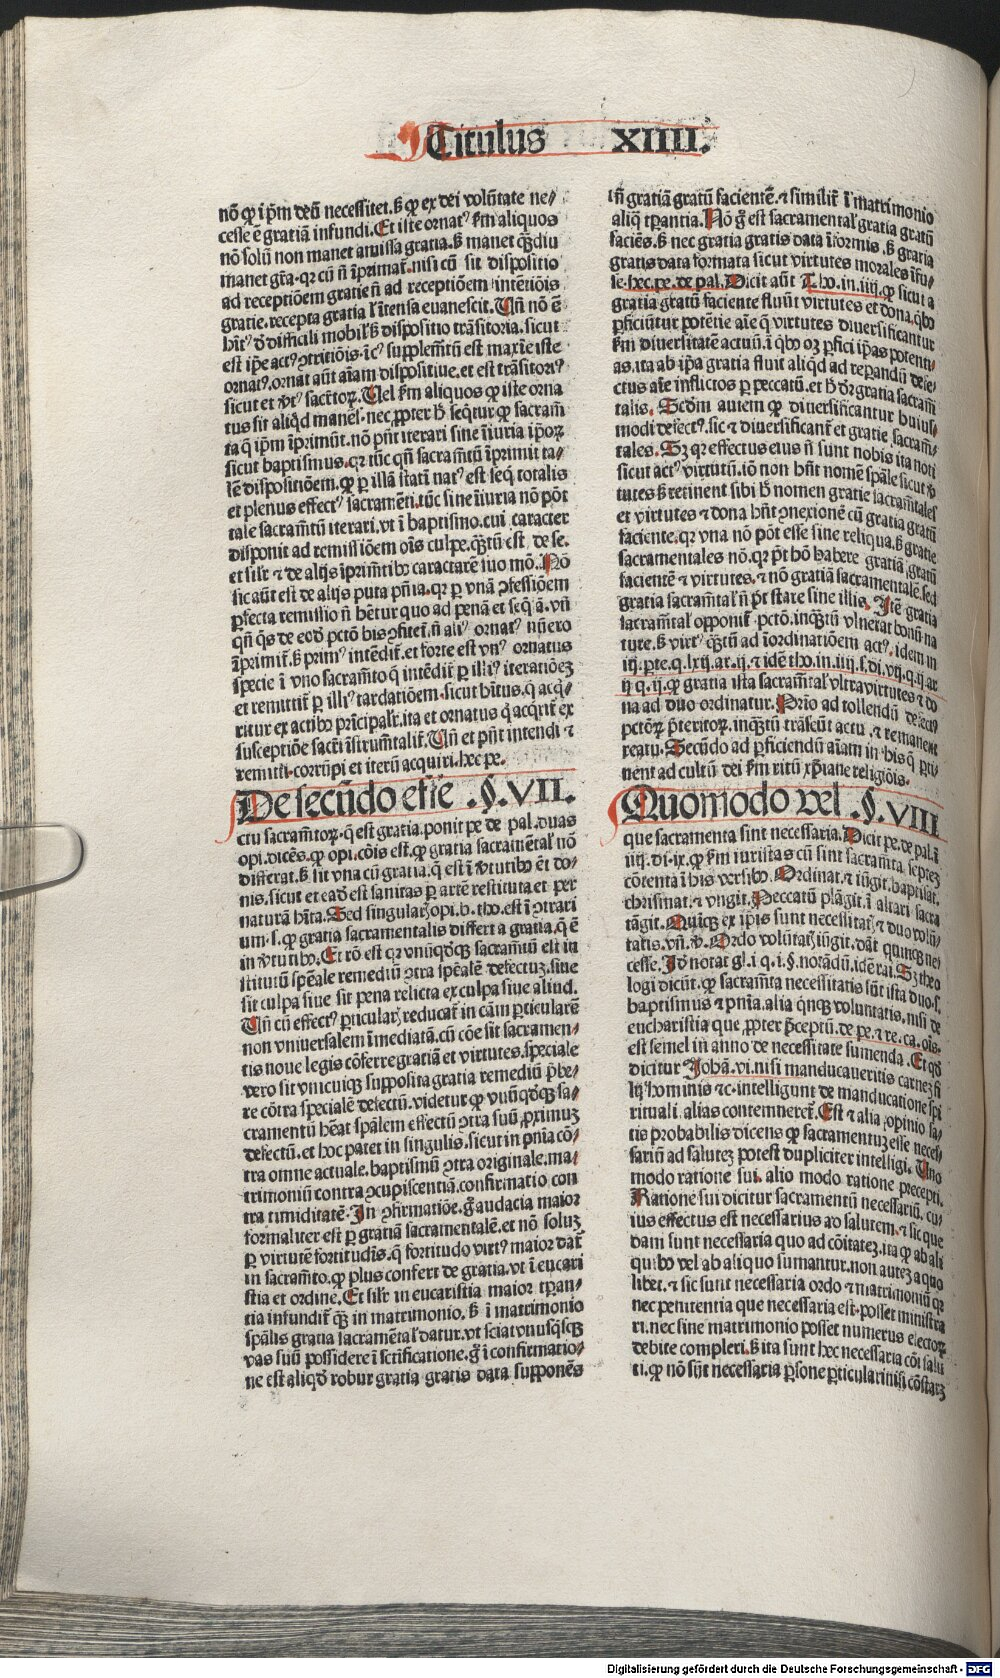 Titulus XIIII.
nō ꝙ ip̄m deū necessitet. ꝫ ꝙ ex dei volūtate ne⸗
cesse ē gratiā infundi. Et iste ornatꝰ ẜm aliquos
nō solū non manet amissa gratia. ꝫ manet qͣ̄diu
manet gr̄a. qꝛ cū n̄ īprimat̄. nisi cū sit dispositio
ad receptiōem gratie n̄ ad receptiōem intētiōis
gratie. recepta gratia ł ītensa euanescit. Vn̄ nō ē
hītꝰ ꝺ̄ difficili mobił. ꝫ dispositio trāsitoria. sicut
est ip̄e actꝰ ꝯtritiōis. ī cꝰ supplem̄tū est maxīe iste
ornatꝰ. ornat aūt aīam dispositiue. et est trāsitoriꝰ
sicut et vͬtꝰ sacr̄toꝝ. Uel ẜm aliquos ꝙ iste orna
tus sit aliqͥd manēs. nec ꝓpter h̄ seqͥtur ꝙ sacram̄
ta q̄ ip̄m īprimūt. nō pn̄t iterari sine īiuria ip̄oꝝ
sicut baptismus. qꝛ tūc qn̄ sacram̄tū īprimit ta⸗
lē dispositiōem. ꝙ ꝑ illā statī natꝰ est seqͥ totalis
et plenus effectꝰ sacramēti. tūc sine īiuria nō pōt
tale sacram̄tū iterari. vt ī baptismo. cui caracter
disponit ad remissiōem oīs culpe. qͣ̄tū est de se.
et sił̄r ⁊ de alijs īprim̄tibꝰ caracterē suo mō. Nō
sic aūt est de alijs puta pn̄ia. qꝛ ꝑ vnā ꝯfessiōem
ꝑfecta remissio n̄ hētur quo ad penā et seq̄la. vn̄
qn̄ qͥs de eodē pctō bis ꝯfitet̄. n̄ aliꝰ ornatꝰ nūero
īprimit̄. ꝫ primꝰ intēdit̄. et forte est vnꝰ ornatus
specie ī vno sacramēto q̄ intēdit̄ ꝑ illiꝰ iteratiōeꝫ
et remittit̄ ꝑ illiꝰ tardatiōem. sicut hītus. q̄ acqͥ⸗
ritur ex actibꝰ prīcipalr̄. ita et ornatus q̄ acqͥrit̄ ex
susceptiōe sacr̄i īstrum̄talit̄. Vn̄ et pn̄t intendi ⁊
remitti. corrūpi et iterū acquiri. hec pe.
De secūdo effe .§. VII.
ctu sacram̄toꝝ. q̄ est gratia. ponit pe de pal. duas
opi. dicēs. ꝙ opi. cōis est. ꝙ gratia sacramētał nō
differat. ꝫ sit vna cū gratia. q̄ est ī vͬtutibꝰ ēt do⸗
nis. sicut et eadē est sanitas ꝑ artē restituta et per
naturā hīta. Sed singularꝭ opi. b. tho. est ī ꝯtrari
um. s. ꝙ gratia sacramentalis differt a gratia. q̄ ē
in vͬtutibꝰ. Et rō est qꝛ vnūqͦdqꝫ sacram̄tū est in
stitutū spēale remediū ꝯtra spēalē defectuꝫ. siue
sit culpa siue sit pena relicta ex culpa siue aliud.
Vn̄ cū effectꝰ ꝑticularꝭ reducat̄ in cām ꝑticularē
non vniuersalem īmediatā. cū cōe sit sacramen⸗
tis noue legis cōferre gratiā et virtutes. speciale
vero sit vnicuiqꝫ supposita gratia remediū p̄be⸗
re cōtra specialē defectū. videtur ꝙ vnūqͦdqꝫ sa⸗
cramentū hēat spālem effectū ꝯtra suū ꝓximuꝫ
defectū. et hoc patet in singulis. sicut in pn̄ia cō⸗
tra omne actuale. baptismū ꝯtra originale. ma⸗
trimoniū contra ꝯcupiscentiā. confirmatio con
tra timiditatē. In ꝯfirmatiōe. g̊ audacia maior
formaluer est ꝑ gratiā sacramentalē. et nō soluꝫ
ꝑ virtutē fortitudīs. q̄ fortitudo virtꝰ maior dat̄
in sacram̄to. ꝙ plus confert de gratia. vt ī eucari
stia et ordine. Et sił̄r in eucaristia maior tꝑan⸗
tia infundit̄ qͣ̄ꝫ in matrimonio. ꝫ ī matrimonio
spālis gratia sacramētał datur. vt sciat vnusqͥsqꝫ
vas suū possidere ī sctīficatione. g̊ ī confirmatio⸗
ne est aliqͦd robur gratia gratis data supponēs
n̄ gratiā gratū facientē. ⁊ similit̄ ī matrimonio
aliq̄ tꝑantia. Nō g̊ est sacramental̓ gratia gratū
faciēs. ꝫ nec gratia gratis data īformis. ꝫ gratia
gratis data formata sicut virtutes morales īfu⸗
se. hec pe. de pal. Dicit aūt Tho. in. iiij. ꝙ sicut a
gratia gratū faciente fluūt virtutes et dona. qͥbꝰ
ꝑficiūtur potētie aīe q̄ virtutes diuersificantur
ẜm diuersitatē actuū. ī qͥbꝰ oꝫ ꝑfici ip̄as potenti⸗
as. ita ab ip̄a gratia fluit aliqͥd ad reꝑandū defe⸗
ctus aīe inflictos ꝑ peccatū. et h̄ dr̄ gratia sacram̄
talis. Scd̄m autem ꝙ diuersificantur huius⸗
modi defectꝰ. sic ⁊ diuersificant̄ et gratie sacram̄⸗
tales. Sꝫ qꝛ effectus eius n̄ sunt nobis ita noti
sicut actꝰ virtutū. iō non hn̄t nomē spāle sicut vͬ
tutes ꝫ retinent sibi h̄ nomen gratie sacram̄tales
et virtutes ⁊ dona hn̄t ꝯnexionē cū gratia gratū
faciente. qꝛ vna nō pōt esse sine reliqua. ꝫ gratie
sacramentales nō. qꝛ pt̄ hō habere gratiā gratū
facientē ⁊ virtutes. ⁊ nō gratiā sacramentalē. sed
gratia sacram̄tał n̄ pt̄ stare sine illis. Itē gratia
sacram̄tał opponit̄ pctō. inqͣ̄tū vlnerat bonū na
ture. ꝫ virtꝰ qͣ̄tū ad īordinatiōem actꝰ. idem in
iij. ꝑte. q. lxij. ar. ij. ⁊ idē tho. in. iiij. s. di. vij. q. ij. ar
ij q. ij. ꝙ gratia ista sacram̄tał vltra virtutes ⁊ do
na ad duo ordinatur. Prīo ad tollendū defectꝰ
pctōꝝ p̄teritoꝝ. inqͣ̄tū trāseūt actu ⁊ remanent
reatu. Secūdo ad ꝑficiendū aīam in hīs q̄ ꝑti⸗
nent ad cultū dei ẜm ritū xp̄iane religiōis.
Quomodo vel .§. VIII
que sacramenta sint necessaria. Dicit pe. de pal. ī
iiij. di. ix. ꝙ ẜm iuristas cū sint sacram̄ta septeꝫ
cōtenta ī his versibꝰ. Ordinat. ⁊ iūgit. baptisat.
chrismat. ⁊ vngit. Peccatū plāgit. ī altari sacra
tāgit. Quicqꝫ ex ip̄is sunt necessitatꝭ ⁊ duo volū⸗
tatis. vn̄. v̊. Ordo volūtatꝭ iūgit. dāt quinqꝫ ne⸗
cesse. Id̓ notat gl. i. q. i. §. notādū. idē rai. Sꝫ theo
logi dicūt. ꝙ sacram̄ta necessitatis sūt ista duo. s.
baptismus ⁊ pn̄ia. alia qͥnqꝫ voluntatis. nisi de
eucharistia que ꝓpter p̄ceptū. de pe. ⁊ re. ca. oīs.
est semel in anno de necessitate sumenda. Et qͦd
dicitur Johā. vi. nisi manducaueritis carneꝫ fi
lij hominis ⁊c. intelligunt de manducatione spi
rituali. alias contemneret̄. Est ⁊ alia opinio sa⸗
tis probabilis dicens ꝙ sacramentuꝫ esse neces⸗
sariū ad saluteꝫ potest dupliciter intelligi. Uno
modo ratione sui. alio modo ratione precepti.
Ratione sui dicitur sacramentū necessariū. cu⸗
ius effectus est necessarius ad salutem. ⁊ sic que
dam sunt necessaria quo ad cōitateꝫ. ita ꝙ ab ali
quibꝰ vel ab aliquo sumantur. non auteꝫ a quo
libet. ⁊ sic sunt necessaria ordo ⁊ matrimoniū qꝛ
nec penitentia que necessaria est. posset ministra
ri. nec sine matrimonio posset numerus electoꝝ
debite compleri. ꝫ ita sunt hec necessaria cōi salu
ti. ꝙ nō sūt necessaria ꝑsone ꝑticulari nisi cōstaꝝ
Digitalisierung gefördert durch die Deutsche Forschungsgemeinschaft - DFG